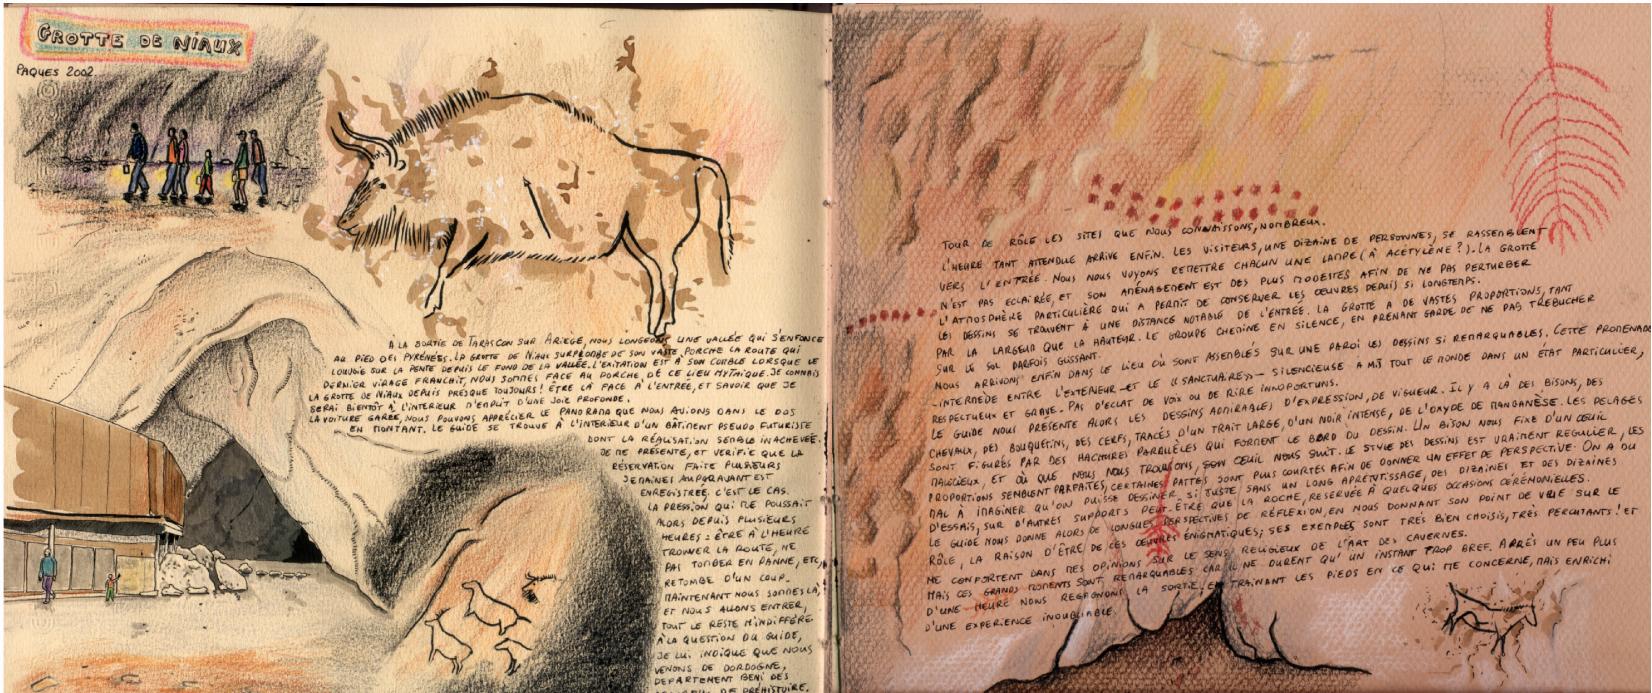 GROTTE DE NIAUX
PAQUES 2002.
A LA SORTIE DE TARASCON SUR ARIEGE, NOUS LONGEONS UNE VALLÉE QUI S'ENFONCE
AU PIED DES PYRÉNÉES. LA GROTTE DE NIAUX SURPLOMBE DE SON VASTE PORCHE LA ROUTE QUI
LOUVOIE SUR LA PENTE DEPUIS LE FOND DE LA VALLÉE. L'EXITATION EST À SON COMBLE LORSQUE LE
DERNIER VIRAGE FRANCHIT, NOUS SOMMES FACE AU PORCHE DE CE LIEU MYTHIQUE. JE CONNAIS
LA GROTTE DE NIAUX DEPUIS PRESQUE TOUJOURS! ÊTRE LÀ FACE À L'ENTRÉE, ET SAVOIR QUE JE
SERAI BIENTÔT À L'INTERIEUR M'EMPLIT D'UNE JOIE PROFONDE.
LA VOITURE GARÉE, NOUS POUVONS APPRÉCIER LE PANORAMA QUE NOUS AVIONS DANS LE DOS
EN MONTANT. LE GUIDE SE TROUVE À L'INTERIEUR D'UN BÂTIMENT PSEUDO FUTURISTE
DONT LA RÉALISATION SEMBLE INACHEVÉE.
JE ME PRÉSENTE, ET VERIFIE QUE LA
RÉSERVATION FAITE PLUSIEURS
SEMAINES AUPARAVANT EST
ENREGISTREE. C'EST LE CAS.
LA PRESSION QUI ME POUSSAIT
ALORS DEPUIS PLUSIEURS
HEURES: ÊTRE À L'HEURE
TROUVER LA ROUTE, NE
PAS TOMBER EN PANNE, ETC,
RETOMBE D'UN COUP.
MAINTENANT NOUS SOMMES LÀ,
ET NOUS ALLONS ENTRER,
TOUT LE RESTE M'INDIFFÉRE
À LA QUESTION DU GUIDE,
JE LUI INDIQUE QUE NOUS
VENONS DE DORDOGNE,
DEPARTEMENT BENI DES
DE PRÉHISTOIRE.
TOUR DE RÔLE LES SITES QUE NOUS CONNAISSONS, NOMBREUX.
L'HEURE TANT ATTENDUE ARRIVE ENFIN. LES VISITEURS, UNE DIZAINE DE PERSONNES, SE RASSEMBLENT
VERS L'ENTRÉE. NOUS NOUS VOYONS REMETTRE CHACUN UNE LAMPE (À ACÉTYLÈNE?). LA GROTTE
N'EST PAS ECLAIRÉE, ET SON AMÉNAGEMENT EST DES PLUS MODESTES AFIN DE NE PAS PERTURBER
L'ATMOSPHÈRE PARTICULIÈRE QUI A PERMIT DE CONSERVER LES ŒUVRES DEPUIS SI LONGTEMPS.
LES DESSINS SE TROUVENT À UNE DISTANCE NOTABLE DE L'ENTRÉE. LA GROTTE A DE VASTES PROPORTIONS, TANT
PAR LA LARGEUR QUE LA HAUTEUR. LE GROUPE CHEMINE EN SILENCE, EN PRENANT GARDE DE NE PAS TRÉBUCHER
SUR LE SOL PARFOIS GLISSANT.
NOUS ARRIVONS ENFIN DANS LE LIEU OÙ SONT ASSEMBLÉS SUR UNE PAROI LES DESSINS SI REMARQUABLES. CETTE PROMENADE
-INTERMEDE ENTRE L'EXTERIEUR ET LE «SANCTUAIRE»- SILENCIEUSE A MIS TOUT LE MONDE DANS UN ÉTAT PARTICULIER,
RESPECTUEUX ET GRAVE. PAS D'ECLAT DE VOIX OU DE RIRE INNOPORTUNS.
LE GUIDE NOUS PRÉSENTE ALORS LES DESSINS ADMIRABLES D'EXPRESSION, DE VIGUEUR. IL Y A LÀ DES BISONS, DES
CHEVAUX, DES BOUQUETINS, DES CERFS, TRACÉS D'UN TRAIT LARGE, D'UN NOIR INTENSE, DE L'OXYDE DE MANGANÈSE. LES PELAGES
SONT FIGURÉS PAR DES HACHURES PARALLÈLES QUI FORMENT LE BORD DU DESSIN. UN BISON NOUS FIXE D'UN ŒIL
MALICIEUX, ET OÙ QUE NOUS NOUS TROUVIONS, SON ŒUIL NOUS SUIT. LE STYLE DES DESSINS EST VRAIMENT REGULIER, LES
PROPORTIONS SEMBLENT PARFAITES, CERTAINES PATTES SONT PLUS COURTES AFIN DE DONNER UN EFFET DE PERSPECTIVE. ON A DU
MAL À IMAGINER QU'ON PUISSE DESSINER SI JUSTE, SANS UN LONG APRENTISSAGE, DES DIZAINES ET DES DIZAINES
D'ESSAIS, SUR D'AUTRES SUPPORTS PEUT-ÊTRE QUE LA ROCHE, RESERVÉE À QUELQUES OCCASIONS CÉRÉMONIELLES.
LE GUIDE NOUS DONNE ALORS DE LONGUES PERSPECTIVES DE RÉFLEXION, EN NOUS DONNANT SON POINT DE VUE SUR LE
RÔLE, LA RAISON D'ÊTRE DE CES ŒUVRES ÉNIGMATIQUES; SES EXEMPLES SONT TRÈS BIEN CHOISIS, TRÈS PERCUTANTS! ET
ME CONFORTENT DANS MES OPINIONS SUR LE SENS RELIGIEUX DE L'ART DES CAVERNES.
MAIS CES GRANDS MOMENTS SONT REMARQUABLES CAR ILS NE DURENT QU'UN INSTANT TROP BREF. APRÈS UN PEU PLUS
D'UNE HEURE NOUS REGAGNONS LA SORTIE, EN TRAINANT LES PIEDS EN CE QUI ME CONCERNE, MAIS ENRICHI
D'UNE EXPERIENCE INOUBLIABLE.